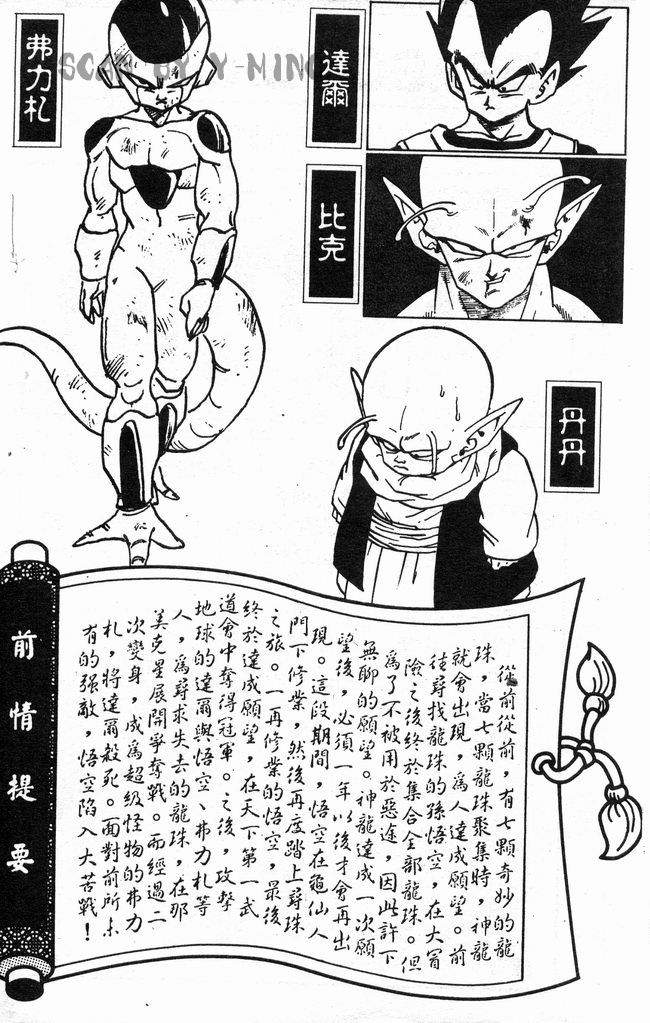 SCAN BY Y-MING
達爾
弗力札
比克
丹丹
前情提要
從前從前，有七顆奇妙的龍
珠，當七顆龍珠聚集時，神龍
就會出現，爲人達成願望。前
往尋找龍珠的孫悟空，在大冒
險之後終於集合全部龍珠。但
爲了不被用於惡途，因此許下
無聊的願望。神龍達成一次願
望後，必須一年以後才會再出
現。這段期間，悟空在龜仙人
門下修業，然後再度踏上尋珠
之旅。一再修業的悟空，最後
終於達成願望，在天下第一武
道會中奪得冠軍。之後，攻擊
地球的達爾與悟空、弗力札等
人，爲尋求失去的龍珠，在那
美克星展開爭奪戰。而經過二
次變身，成爲超級怪物的弗力
札，將達爾殺死。面對前所未
有的强敵，悟空陷入大苦戰！